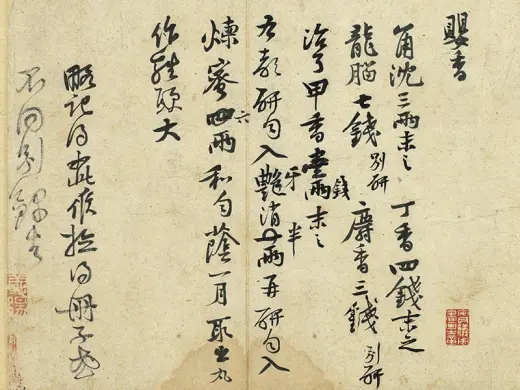 嬰香
角沈三兩末之 丁香四錢末之
龍腦七錢別研 麝香三錢別研
治了甲香壹兩錢末之
右都研勻入豔牙消半兩再研勻入
煉蜜四六兩和勻蔭一月取出丸
作雞頭大
略記得此候檢得冊子或
不同別錄去